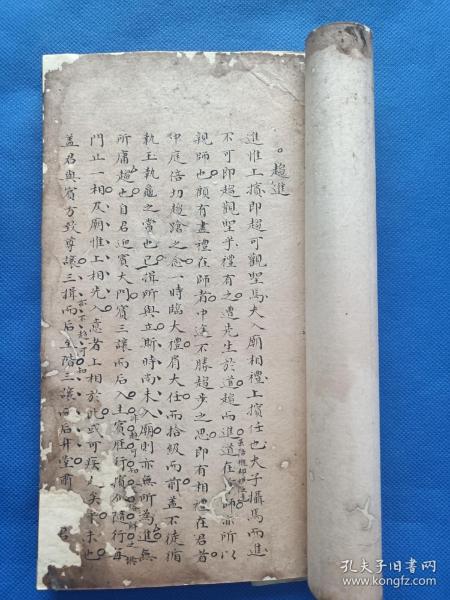 趨進
進惟上擯即趨可觀聖焉夫入廟相禮上擯任也夫子攝焉而進
不可即趨觀聖乎禮有之遭先生於道趨而進道在師亦所以
親師也顧有盡禮在師者中途不勝趨步之思即有相禮在君者
中庭倍切趨蹌之念一時臨大禮肩大任而拾級而前蓋不徒循
執玉執龜之當也已揖所與立斯時尚未入廟則亦無所為進無
所庸趨也自君迎賓大門賓三讓而后入主賓雁行擯介隨行每
門止一相及廟惟上相先入意者上相於此或可疾矣乎未也
蓋君與賓方致尊讓三揖而后至階三讓而后升堂
孔夫子旧书网